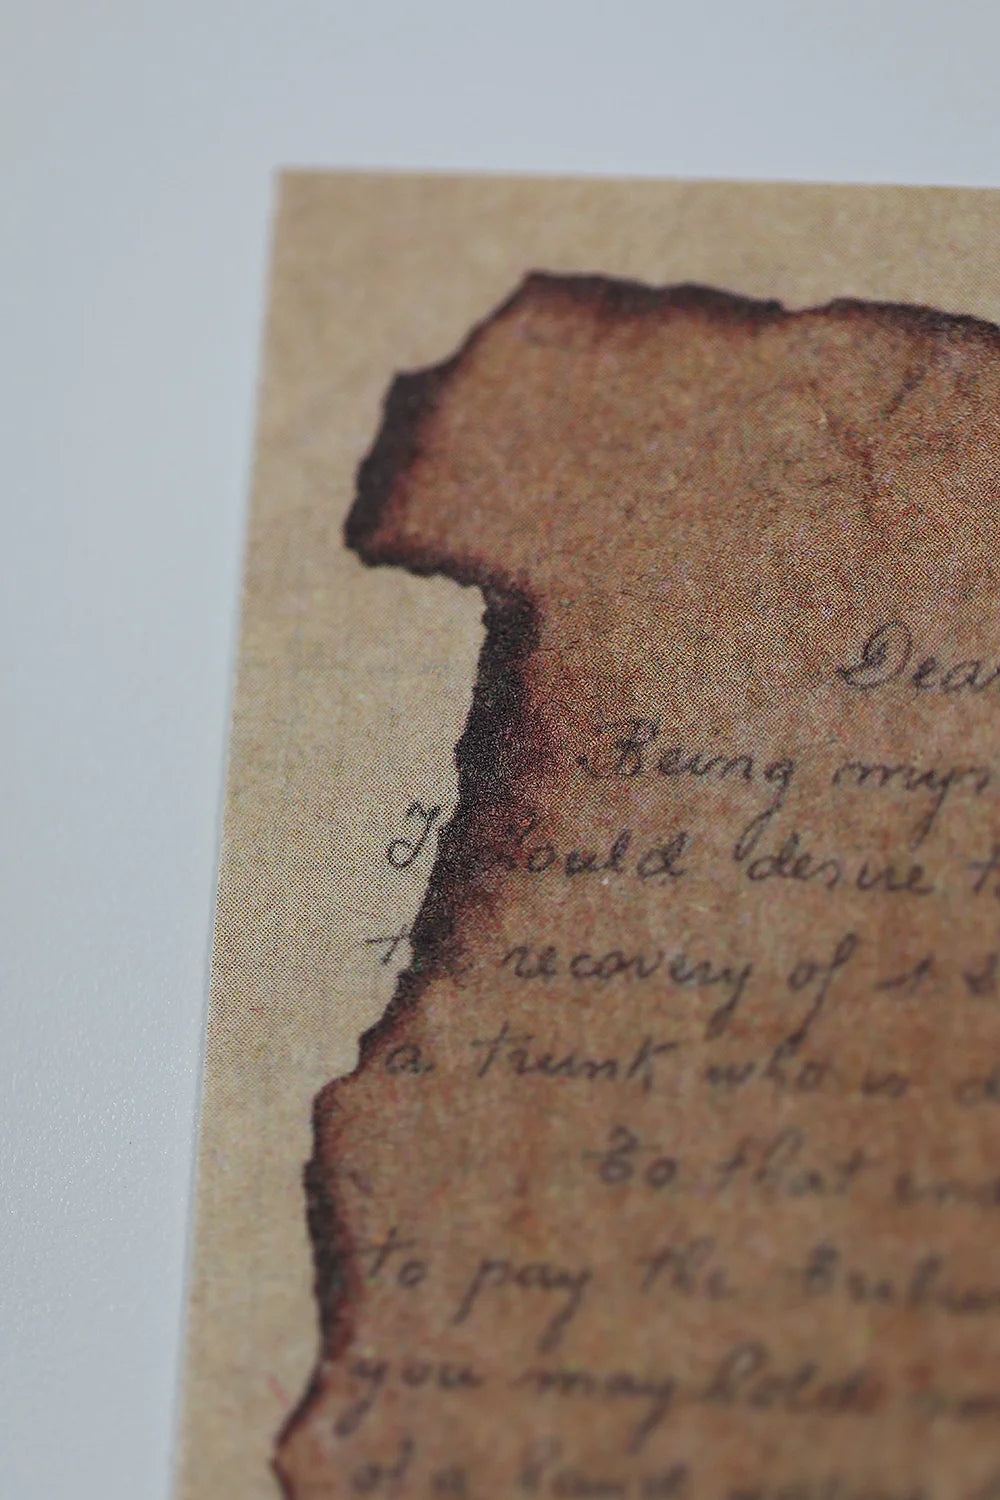 Dear
Being mys
I would desire t
the recovery of
a trunk who is d
To that en
to pay the
you may hold
of a